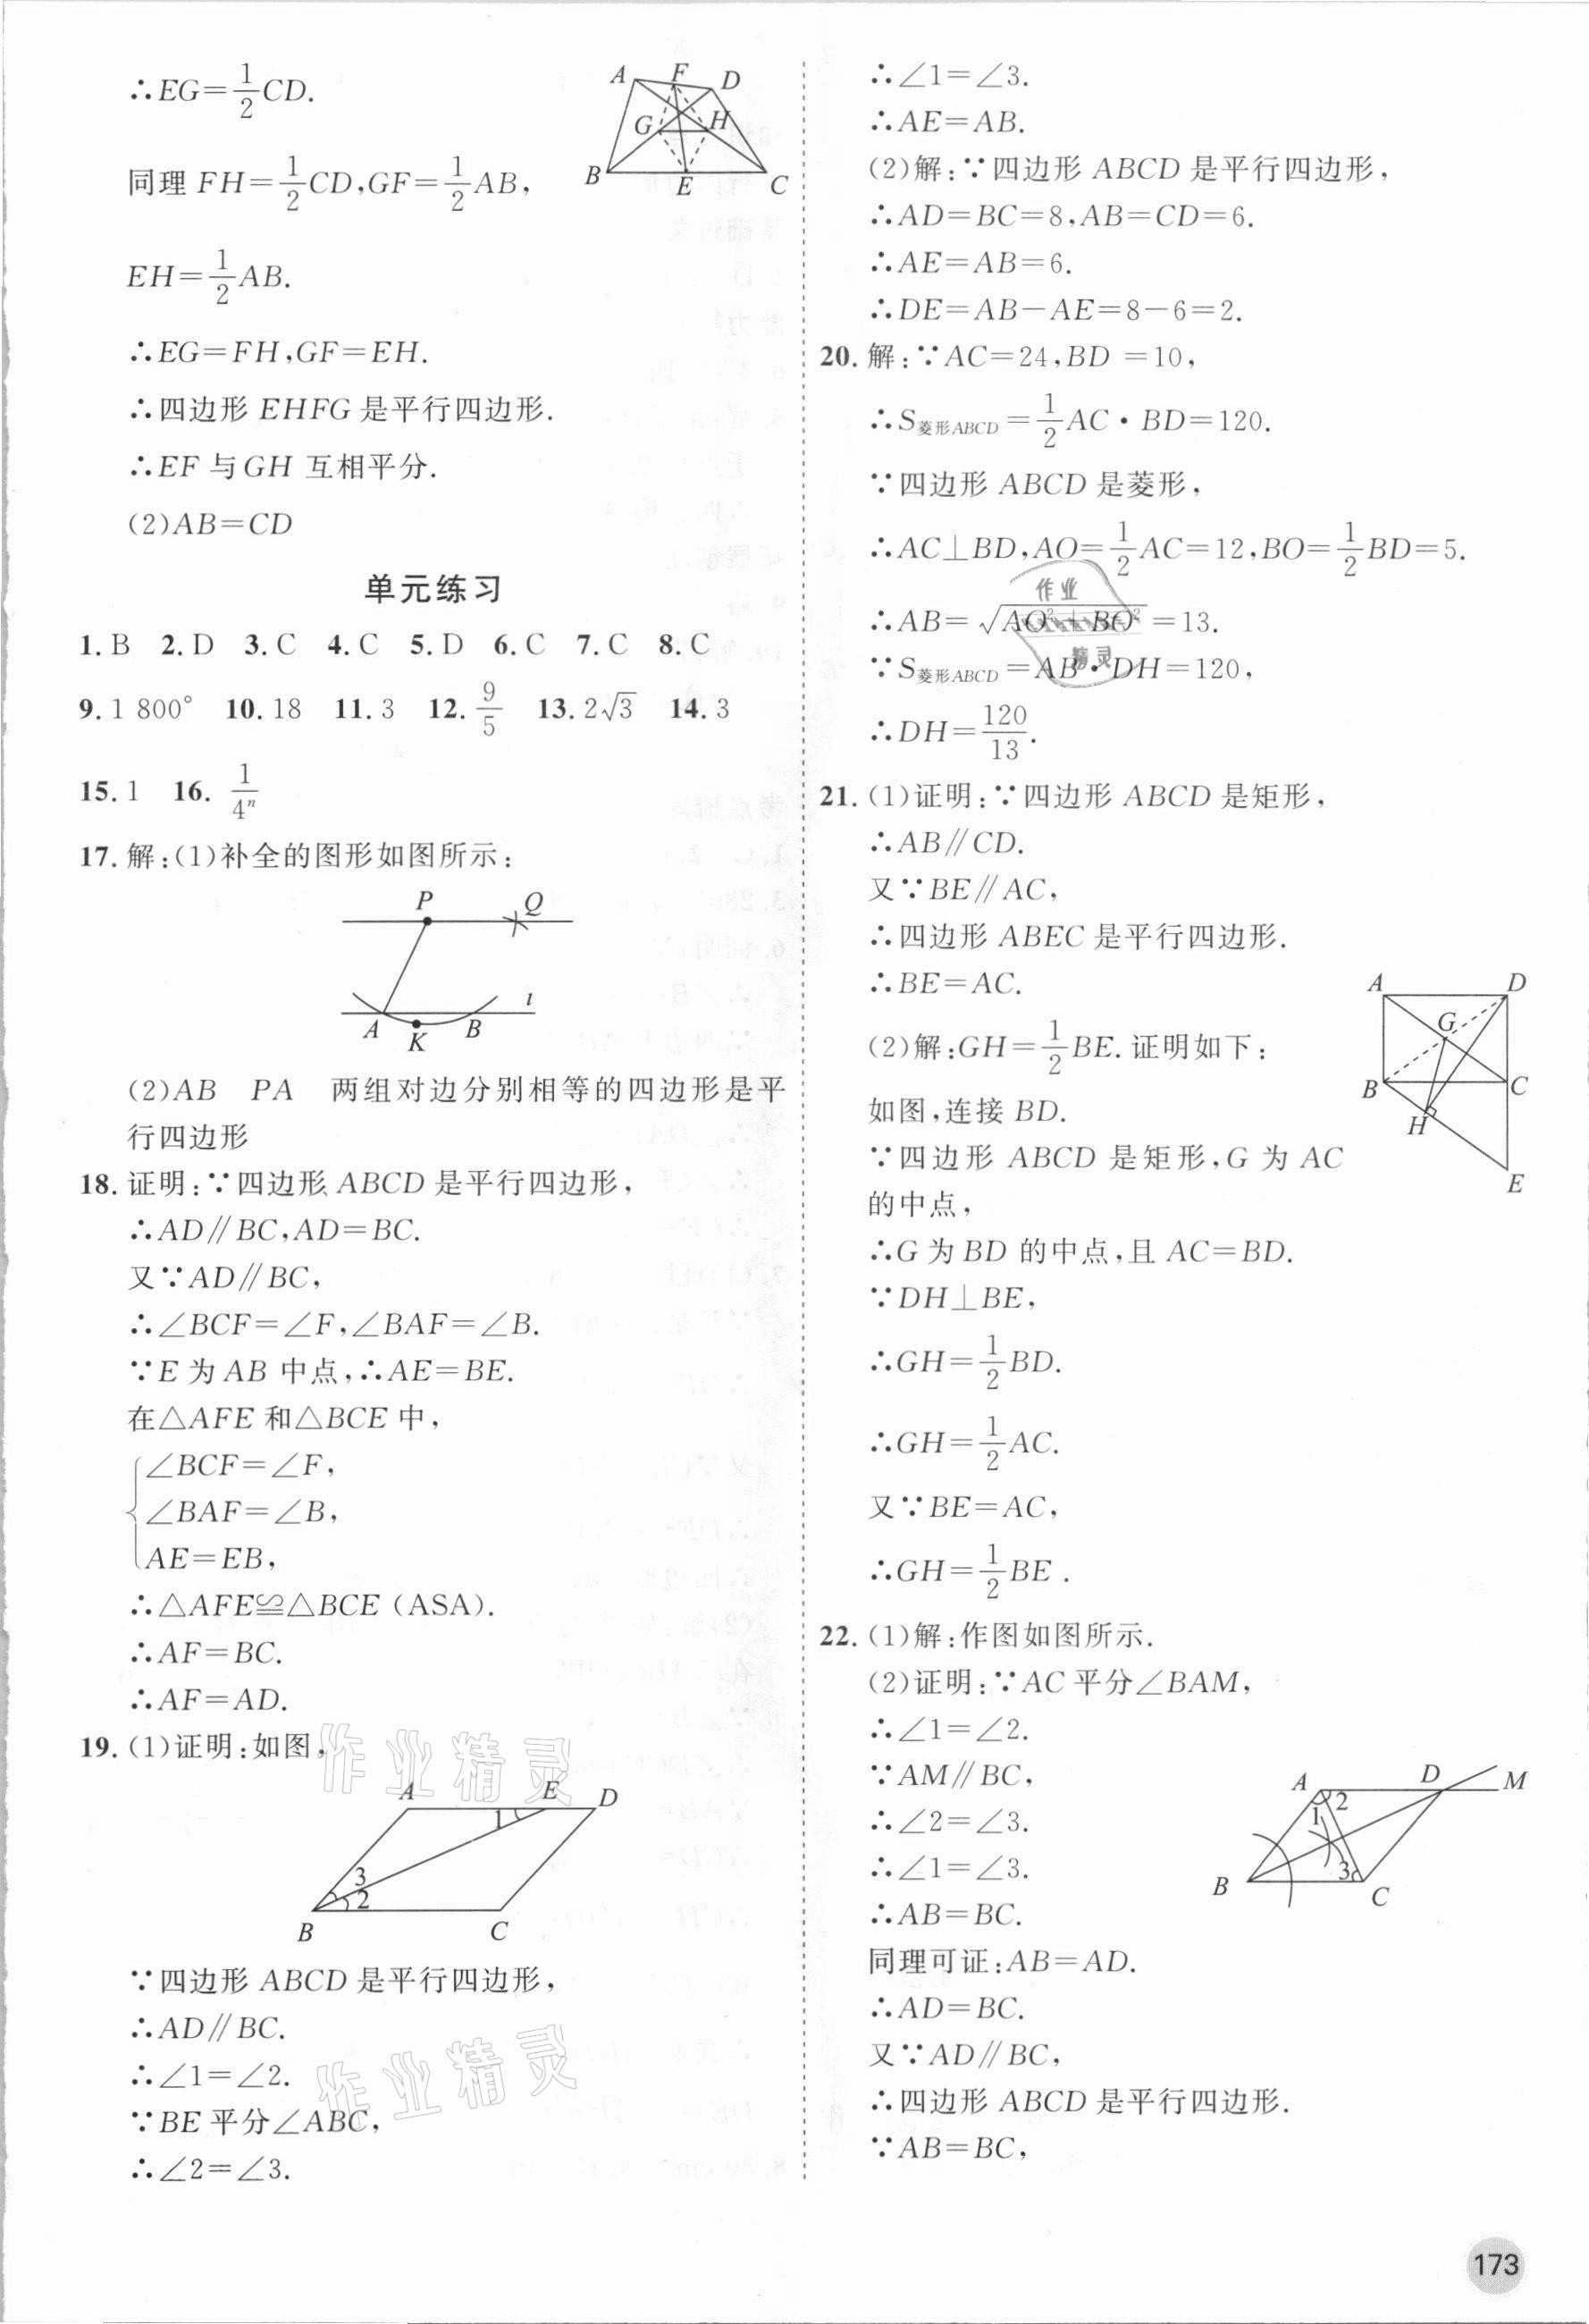 ∴EG=1/2CD.
同理 FH=1/2CD,GF=1/2AB,
EH=1/2AB.
∴EG=FH,GF=EH.
∴四边形 EHFG 是平行四边形.
∴EF 与GH 互相平分.
(2)AB=CD
A F D
G H
B E C
单元练习
1.B 2.D 3.C 4.C 5.D 6.C 7.C 8.C
9.1 800° 10.18 11.3 12.9/5 13.2√3 14.3
15.1 16.1/4ⁿ
17.解:(1)补全的图形如图所示:
P Q
l
A K B
(2)AB PA 两组对边分别相等的四边形是平
行四边形
18.证明:∵四边形 ABCD 是平行四边形,
∴AD∥BC,AD=BC.
又∵AD∥BC,
∴∠BCF=∠F,∠BAF=∠B.
∵E 为 AB 中点,∴AE=BE.
在△AFE 和△BCE 中,
∠BCF=∠F,
∠BAF=∠B,
AE=EB,
∴△AFE≌△BCE (ASA).
∴AF=BC.
∴AF=AD.
19.(1)证明:如图,
作业精灵
A E D
1
3
2
B C
∵四边形 ABCD 是平行四边形,
∴AD∥BC.
∴∠1=∠2.
∵BE 平分∠ABC,
∴∠2=∠3.
作业精灵
∴∠1=∠3.
∴AE=AB.
(2)解:∵四边形 ABCD 是平行四边形,
∴AD=BC=8,AB=CD=6.
∴AE=AB=6.
∴DE=AB-AE=8-6=2.
20.解:∵AC=24,BD =10,
∴S菱形ABCD=1/2AC·BD=120.
∵四边形 ABCD 是菱形,
∴AC⊥BD,AO=1/2AC=12,BO=1/2BD=5.
作业
∴AB=√(AO²+BO²)=13.
精灵
∵S菱形ABCD=AB·DH=120,
∴DH=120/13.
21.(1)证明:∵四边形 ABCD 是矩形,
∴AB∥CD.
又∵BE∥AC,
∴四边形 ABEC 是平行四边形.
∴BE=AC.
(2)解:GH=1/2BE.证明如下:
如图,连接 BD.
∵四边形 ABCD 是矩形,G 为 AC
的中点,
∴G 为 BD 的中点,且 AC=BD.
∵DH⊥BE,
∴GH=1/2BD.
∴GH=1/2AC.
又∵BE=AC,
∴GH=1/2BE .
A D
G
B C
H
E
22.(1)解:作图如图所示.
(2)证明:∵AC 平分∠BAM,
∴∠1=∠2.
∵AM∥BC,
∴∠2=∠3.
∴∠1=∠3.
∴AB=BC.
同理可证:AB=AD.
∴AD=BC.
又∵AD∥BC,
∴四边形 ABCD 是平行四边形.
∵AB=BC,
A D M
1 2
3
B C
173